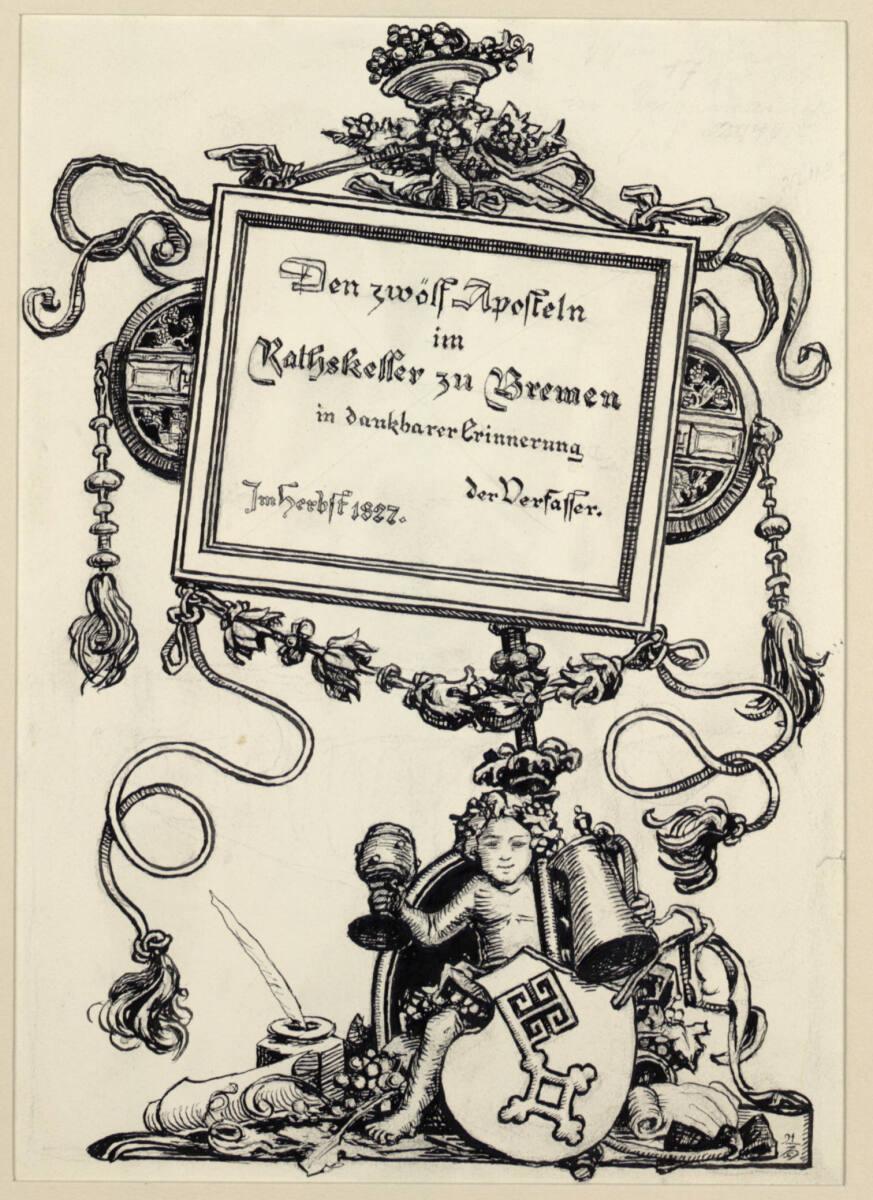 Den zwölf Aposteln
im
Rathskeller zu Bremen
in dankbarer Erinnerung
der Verfasser.
Im Herbst 1827.
91